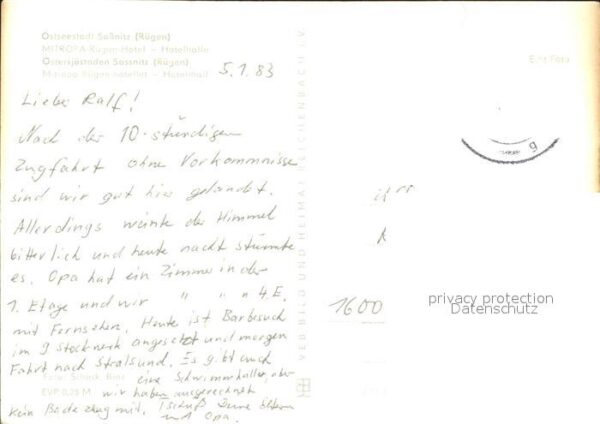 Ostseestadt Saßnitz (Rügen)
MITROPA-Rügen-Hotel – Hotelhalle
Östersjöstaden Sassnitz (Rügen)
Mitropa Rügen-hotellet – Hotellhall
5.1.83
Lieber Ralf!
Nach der 10-stündigen
Zugfahrt ohne Vorkommnisse
sind wir gut hier gelandet.
Allerdings weinte der Himmel
bitterlich und heute nacht stürmte
es. Opa hat ein Zimmer in der
1. Etage und wir " " " 4.E.
mit Fernsehen. Heute ist Barbesuch
im 9. Stockwerk angesetzt und morgen
Fahrt nach Stralsund. Es gibt auch
eine Schwimmhalle, aber
wir haben ausgerechnet
kein Badezeug mit. Tschüß Deine Eltern
und Opa.
EVP 0,25 M
VEB BILD UND HEIMAT REICHENBACH i. V.
Echt Foto
1600
g
privacy protection
Datenschutz